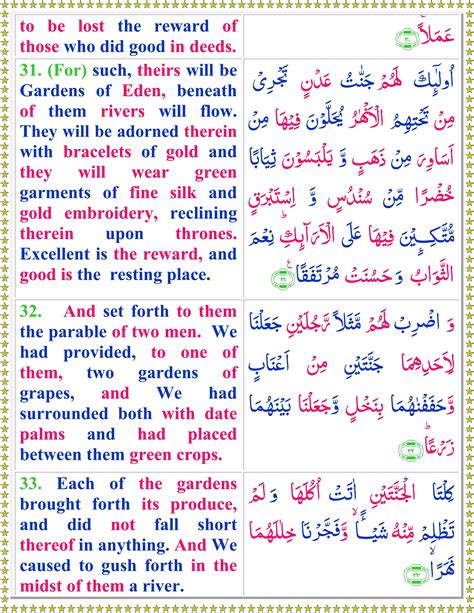 to be lost the reward of
those who did good in deeds.
عَمَلًا ۳۰
31. (For) such, theirs will be
Gardens of Eden, beneath
of them rivers will flow.
They will be adorned therein
with bracelets of gold and
they will wear green
garments of fine silk and
gold embroidery, reclining
therein upon thrones.
Excellent is the reward, and
good is the resting place.
أُولٰٓئِكَ لَهُمْ جَنّٰتُ عَدْنٍ تَجْرِىْ
مِنْ تَحْتِهِمُ الْاَنْهٰرُ يُحَلَّوْنَ فِيْهَا مِنْ
اَسَاوِرَ مِنْ ذَهَبٍ وَّ يَلْبَسُوْنَ ثِيَابًا
خُضْرًا مِّنْ سُنْدُسٍ وَّ اِسْتَبْرَقٍ
مُّتَّكِـِٕيْنَ فِيْهَا عَلَى الْاَرَآىِٕكِ ؕ نِعْمَ
الثَّوَابُ وَ حَسُنَتْ مُرْتَفَقًا ۳۱
32. And set forth to them
the parable of two men. We
had provided, to one of
them, two gardens of
grapes, and We had
surrounded both with date
palms and had placed
between them green crops.
وَ اضْرِبْ لَهُمْ مَّثَلًا رَّجُلَيْنِ جَعَلْنَا
لِاَحَدِهِمَا جَنَّتَيْنِ مِنْ اَعْنَابٍ
وَّحَفَفْنٰهُمَا بِنَخْلٍ وَّجَعَلْنَا بَيْنَهُمَا
زَرْعًا ؕ ۳۲
33. Each of the gardens
brought forth its produce,
and did not fall short
thereof in anything. And We
caused to gush forth in the
midst of them a river.
كِلْتَا الْجَنَّتَيْنِ اٰتَتْ اُكُلَهَا وَ لَمْ
تَظْلِمْ مِّنْهُ شَيْـًٔا ۙ وَّفَجَّرْنَا خِلٰلَهُمَا
نَهَرًا ۙ ۳۳